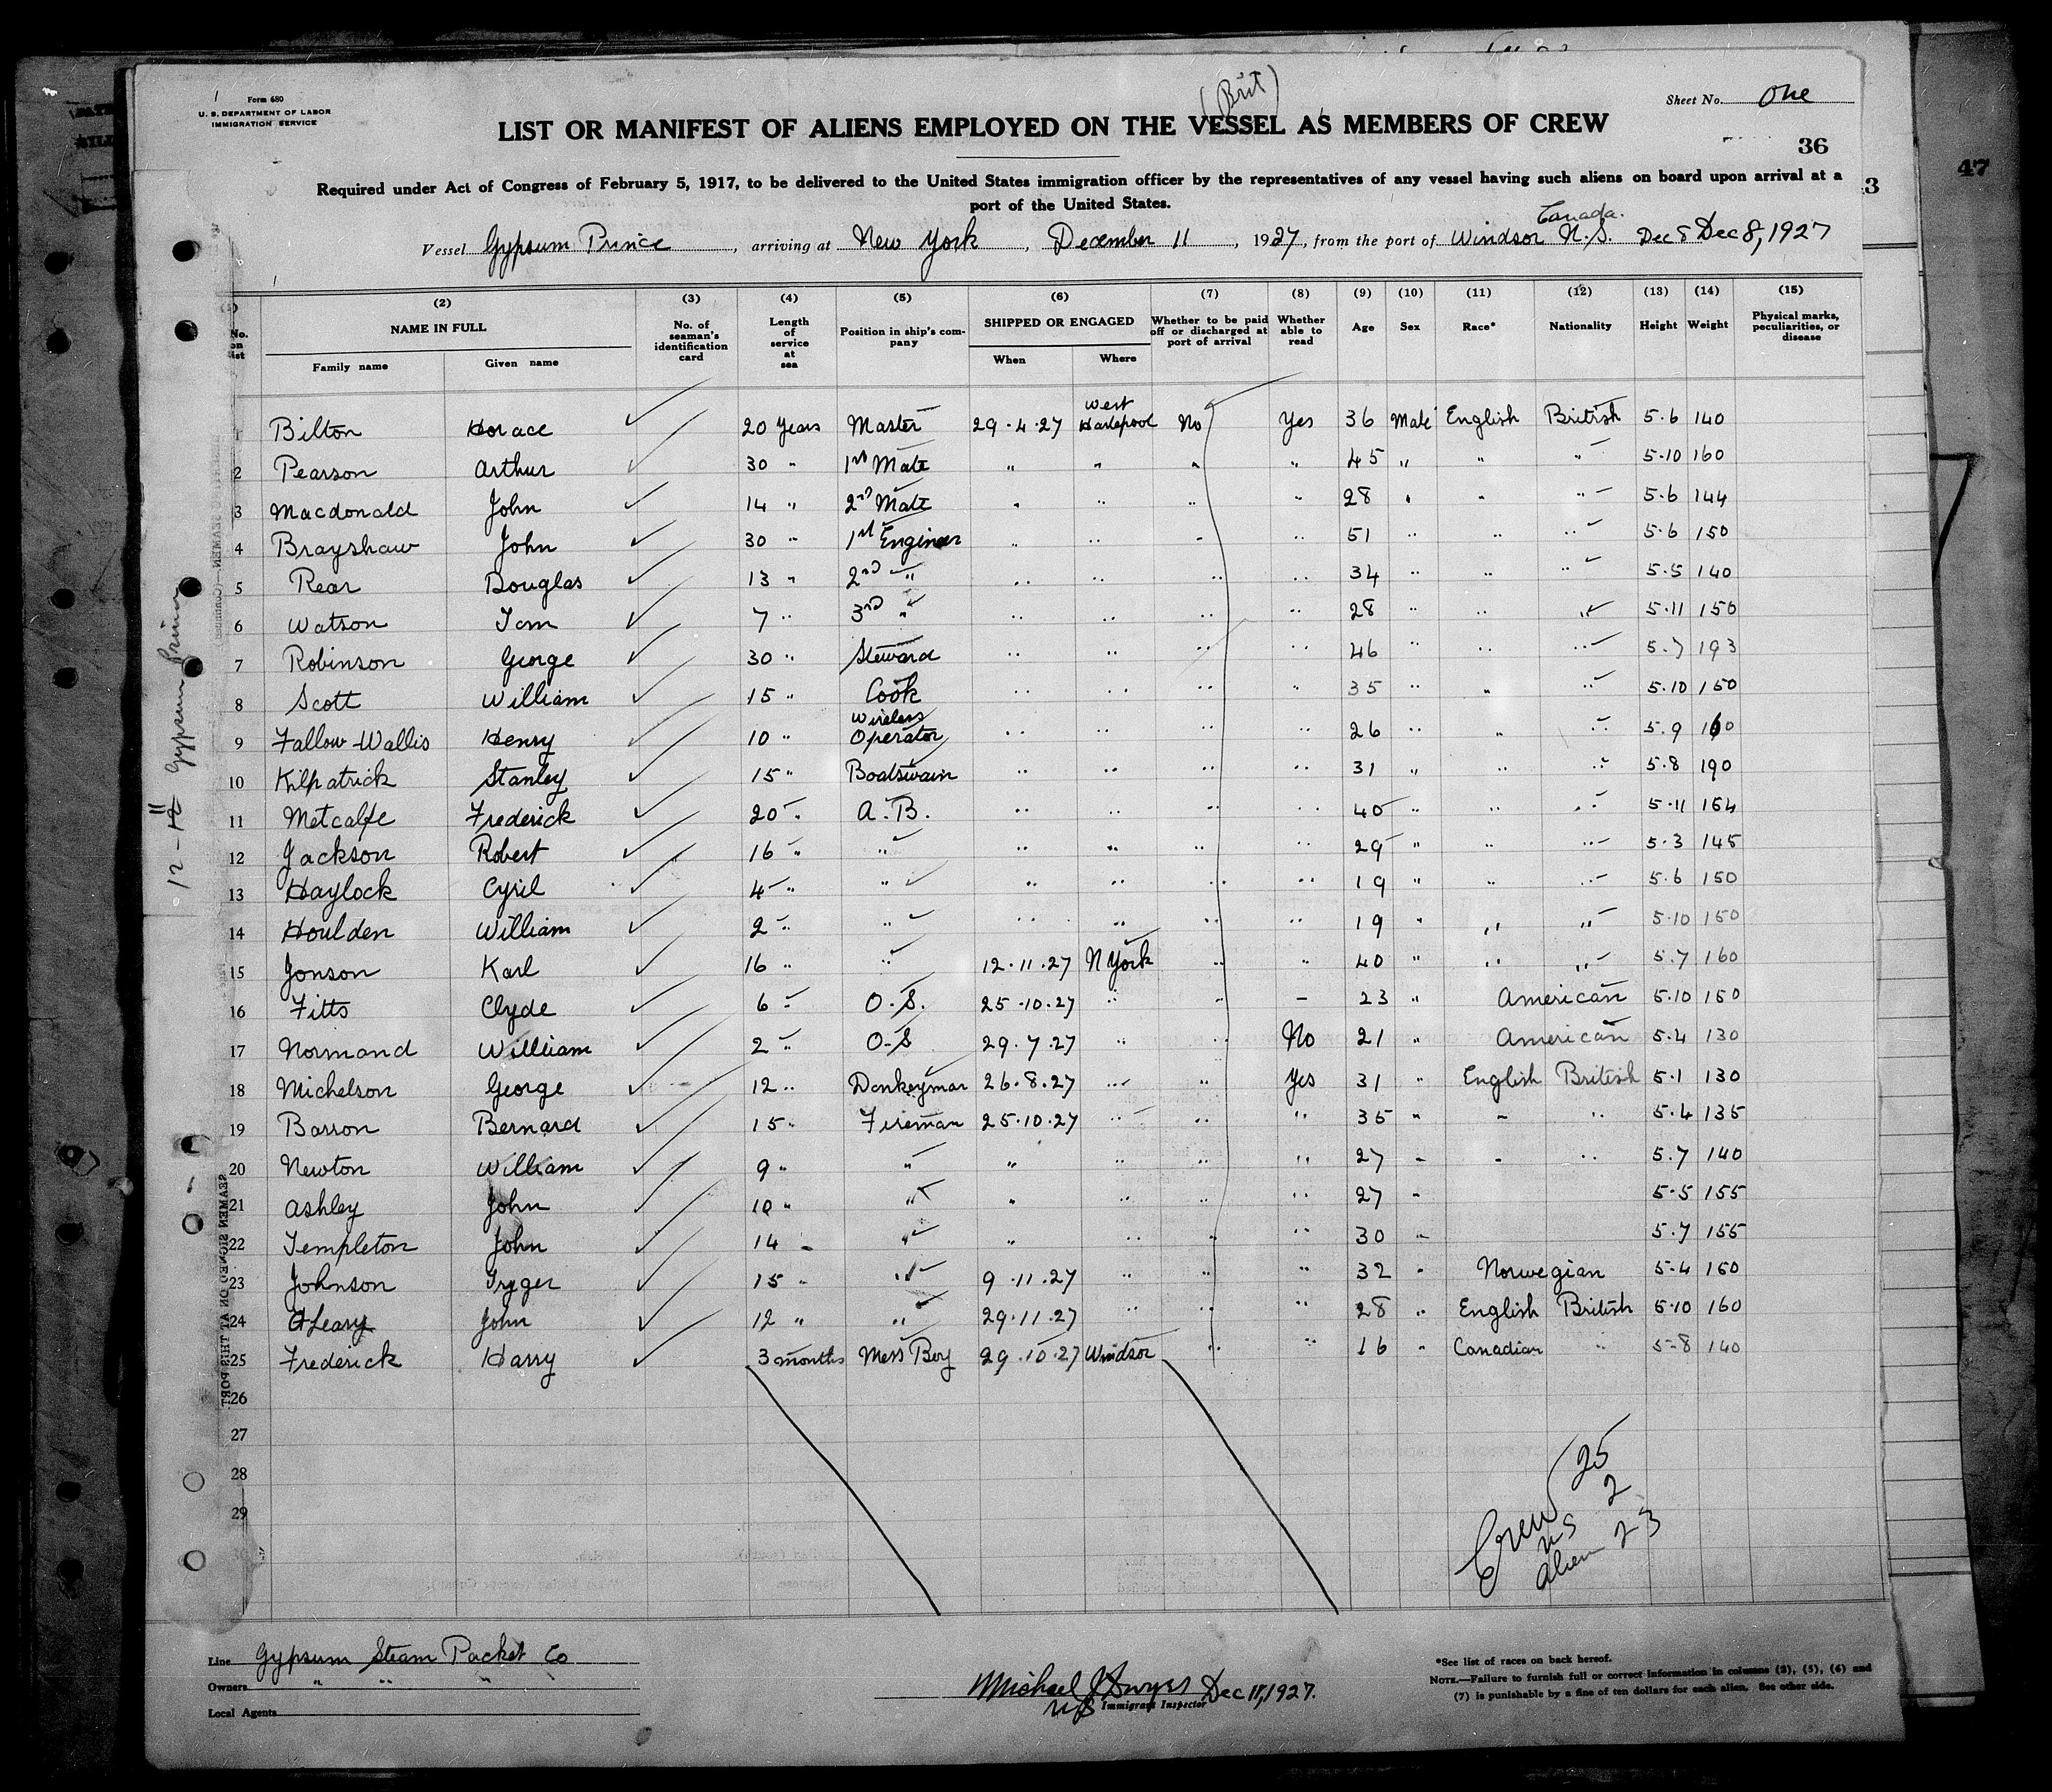 Form 680
U. S. DEPARTMENT OF LABOR
IMMIGRATION SERVICE
(Brit)
Sheet No. One
LIST OR MANIFEST OF ALIENS EMPLOYED ON THE VESSEL AS MEMBERS OF CREW
36
47
3
Required under Act of Congress of February 5, 1917, to be delivered to the United States immigration officer by the representatives of any vessel having such aliens on board upon arrival at a
port of the United States.
Canada.
Vessel Gypsum Prince, arriving at New York, December 11, 1927, from the port of Windsor N.S. Dec 8 Dec 8, 1927
(2) (3) (4) (5) (6) (7) (8) (9) (10) (11) (12) (13) (14) (15)
No. on list NAME IN FULL Family name Given name No. of seaman's identification card Length of service at sea Position in ship's company SHIPPED OR ENGAGED When Where Whether to be paid off or discharged at port of arrival Whether able to read Age Sex Race* Nationality Height Weight Physical marks, peculiarities, or disease
1 Bilton Horace 20 Years Master 29.4.27 West Hartlepool No Yes 36 Male English British 5.6 140
2 Pearson Arthur 30 " 1st Mate " " " " 45 " " " 5.10 160
3 Macdonald John 14 " 2nd Mate " " " " 28 " " " 5.6 144
4 Brayshaw John 30 " 1st Engineer " " " " 51 " " " 5.6 150
5 Rear Douglas 13 " 2nd " " " " " 34 " " " 5.5 140
6 Watson Tom 7 " 3rd " " " " " 28 " " " 5.11 150
7 Robinson George 30 " Steward " " " " 46 " " " 5.7 193
8 Scott William 15 " Cook " " " " 35 " " " 5.10 150
9 Fallow-Wallis Henry 10 " Wireless Operator " " " " 26 " " " 5.9 160
10 Kilpatrick Stanley 15 " Boatswain " " " " 31 " " " 5.8 190
11 Metcalfe Frederick 20 " A.B. " " " " 40 " " " 5.11 164
12 Jackson Robert 16 " " " " " " 29 " " " 5.3 145
13 Haylock Cyril 4 " " " " " " 19 " " " 5.6 150
14 Houlden William 2 " " " " " " 19 " " " 5.10 150
15 Jonson Karl 16 " " 12.11.27 N York " " 40 " " " 5.7 160
16 Fitts Clyde 6 " O.S. 25.10.27 " " - 23 " American 5.10 150
17 Normand William 2 " O-S 29.7.27 " " No 21 " American 5.4 130
18 Michelson George 12 " Donkeyman 26.8.27 " " Yes 31 " English British 5.1 130
19 Barron Bernard 15 " Fireman 25.10.27 " " " 35 " " " 5.4 135
20 Newton William 9 " " " " " " 27 " " " 5.7 140
21 Ashley John 10 " " " " " " 27 " 5.5 155
22 Templeton John 14 " " " " " " 30 " 5.7 155
23 Johnson Tryger 15 " " 9.11.27 " " " 32 " Norwegian 5.4 160
24 O'Leary John 12 " " 29.11.27 " " " 28 " English British 5.10 160
25 Frederick Harry 3 months Mess Boy 29.10.27 Windsor " " 16 " Canadian " 5-8 140
26
27
28
29
Crew 25
US 2
Alien 23
12-11 Gypsum Prince
SEAMEN SIGNED ON AT THIS PORT.
Line Gypsum Steam Packet Co
Owners " " " "
Local Agents
Michael J Dwyer Dec 11, 1927.
US Immigrant Inspector
*See list of races on back hereof.
NOTE.—Failure to furnish full or correct information in columns (2), (5), (6) and
(7) is punishable by a fine of ten dollars for each alien. See other side.